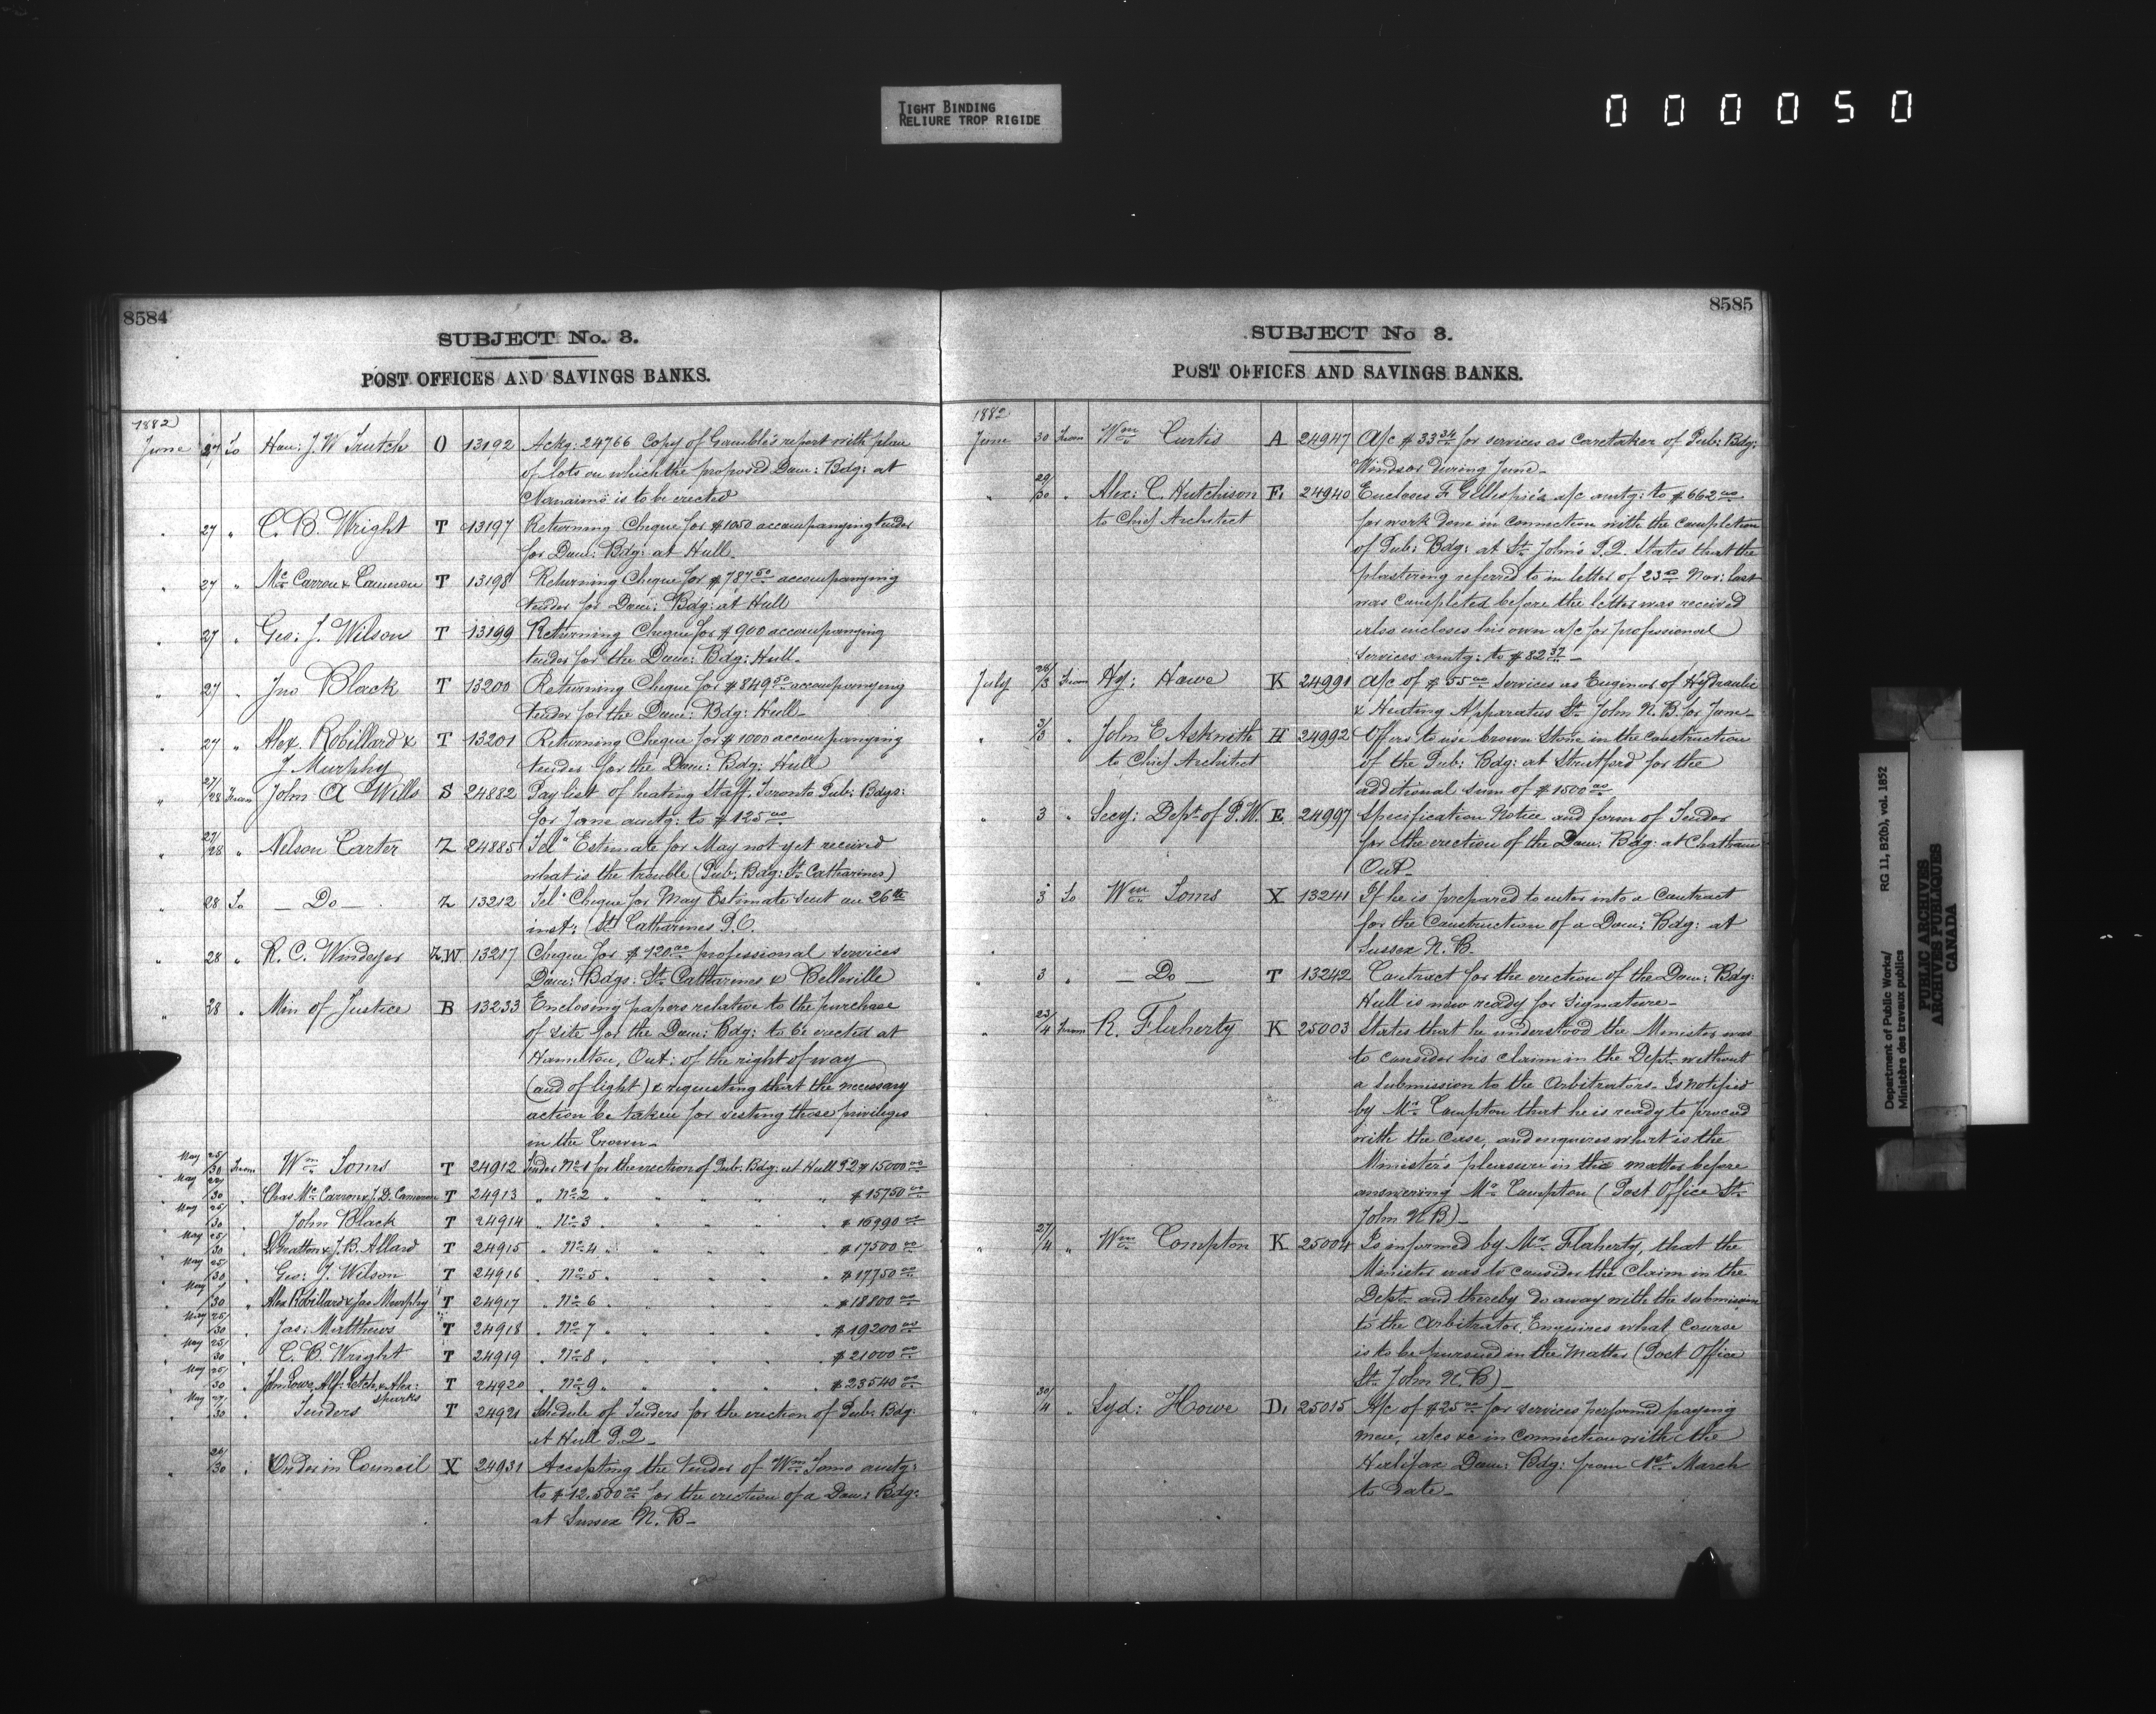 TIGHT BINDING
RELIURE TROP RIGIDE
000050
8584
SUBJECT No. 3.
POST OFFICES AND SAVINGS BANKS.
1882
June 27 To Hon: J. W Trutch O 13192 Ackg: 24766 Copy of Gamble's report with plan
of lots on which the proposed Dom: Bdg: at
Nanaimo is to be erected
" 27 " C. B. Wright T 13197 Returning Cheque for $1050 accompanying tender
for Dom: Bdg: at Hull
" 27 " Mc Carron & Cameron T 13198 Returning Cheque for $787 50 accompanying
tender for Dom: Bdg: at Hull
" 27 " Geo: J. Wilson T 13199 Returning Cheque for $900 accompanying
tender for the Dom: Bdg: Hull
" 27 " Jno Black T 13200 Returning Cheque for $849 50 accompanying
tender for the Dom: Bdg: Hull
" 27 " Alex. Robillard & T 13201 Returning Cheque for $1000 accompanying
J Murphy tender for the Dom: Bdg: Hull
" 27/28 From John A Wills S 24882 Pay list of heating Staff, Toronto Pub: Bdgs:
for June amtg: to $125 00
" 27/28 " Nelson Carter Z 24885 Tel" Estimate for May not yet received
what is the trouble (Pub: Bdg: St Catharines)
" 28 To — Do — Z 13212 Tel" Cheque for May Estimate sent on 26th
inst: (St Catharines P.O.
" 28 " R. C. Windeyer Z.W 13217 Cheque for $120 00 professional services
Dom: Bdgs: St. Catharines & Belleville
" 28 " Min of Justice B 13233 Enclosing papers relative to the purchase
of site for the Dom: Bdg: to be erected at
Hamilton, Ont: of the right of way
(and of light) & requesting that the necessary
action be taken for vesting those privileges
in the Crown—
May 25/30 From Wm Toms T 24912 Tender No 1 for the erection of Pub: Bdg: at Hull P.Q $15000 00
May 27/30 " Chas Mc Carron & J. D. Cameron T 24913 " No 2 " " " " $15750 00
May 25/30 " John Black T 24914 " No 3 " " " " $16990 00
May 25/30 " Gratton & J. B. Allard T 24915 " No 4 " " " " $17500 00
May 25/30 " Geo: J. Wilson T 24916 " No 5 " " " " $17750 00
May /30 " Alex Robillard & Jas Murphy T 24917 " No 6 " " " " $18800 00
May 25/30 " Jas: Matthews T 24918 " No 7 " " " " $19200 00
May 25/30 " C. B. Wright T 24919 " No 8 " " " " $21000 00
May 25/30 " John Lowe, Alf: Letch, & Alex: T 24920 " No 9 " " " " $23540 00
Sparks
May 27/30 " Tenders T 24921 Schedule of Tenders for the erection of Pub: Bdg:
at Hull P.Q—
" 26/30 " Order in Council X 24931 Accepting the tender of Wm Toms amtg:
to $12.500 00 for the erection of a Dom: Bdg:
at Sussex N. B—
8585
SUBJECT No 3.
POST OFFICES AND SAVINGS BANKS.
1882
June 30 From Wm Curtis A 24947 A/c $33 34 for services as caretaker of Pub: Bdg:
Windsor during June—
" 29/30 " Alex: C. Hutchison F. 24940 Encloses F Gillespie's a/c amtg: to $662 00
to Chief Architect for work done in connection with the completion
of Pub: Bdg: at St. John's P.Q. States that the
plastering referred to in letter of 23d Nov: last
was completed before the letter was received
also encloses his own a/c for professional
services amtg: to $82 37—
July 28/3 From Hy: Howe K 24991 A/c of $55 00 services as Engineer of Hydraulic
& Heating Apparatus St. John N. B. for June—
" 3/3 " John E Askwith H 24992 Offers to use brown stone in the construction
to Chief Architect of the Pub: Bdg: at Stratford for the
additional sum of $1500 00
" 3 " Secy: Dept of P.W. E 24997 Specification Notice and form of Tender
for the erection of the Dom: Bdg: at Chatham
Ont—
3 To Wm Toms X 13241 If he is prepared to enter into a Contract
for the Construction of a Dom: Bdg: at
Sussex N. B.
" 3 " — Do — T 13242 Contract for the erection of the Dom: Bdg:
Hull is now ready for Signature—
" 23/4 From R. Flaherty K 25003 States that he understood the Minister was
to consider his claim in the Dept without
a submission to the Arbitrators. Is notified
by Mr Compton that he is ready to proceed
with the case, and enquires what is the
Minister's pleasure in the matter before
answering Mr Compton (Post Office St.
John N B)—
" 27/4 " Wm Compton K 25004 Is informed by Mr Flaherty, that the
Minister was to consider the claim in the
Dept and thereby do away with the submission
to the Arbitrator. Enquires what course
is to be pursued in the matter (Post Office
St. John N. B)—
" 30/4 " Syd: Howe D. 25015 A/c of $25 00 for services performed paying
men, a/cs &c in connection with the
Halifax Dom: Bdg: from 1st March
to date—
Department of Public Works/ RG 11, B2(b), vol. 1852
Ministère des travaux publics
PUBLIC ARCHIVES
ARCHIVES PUBLIQUES
CANADA